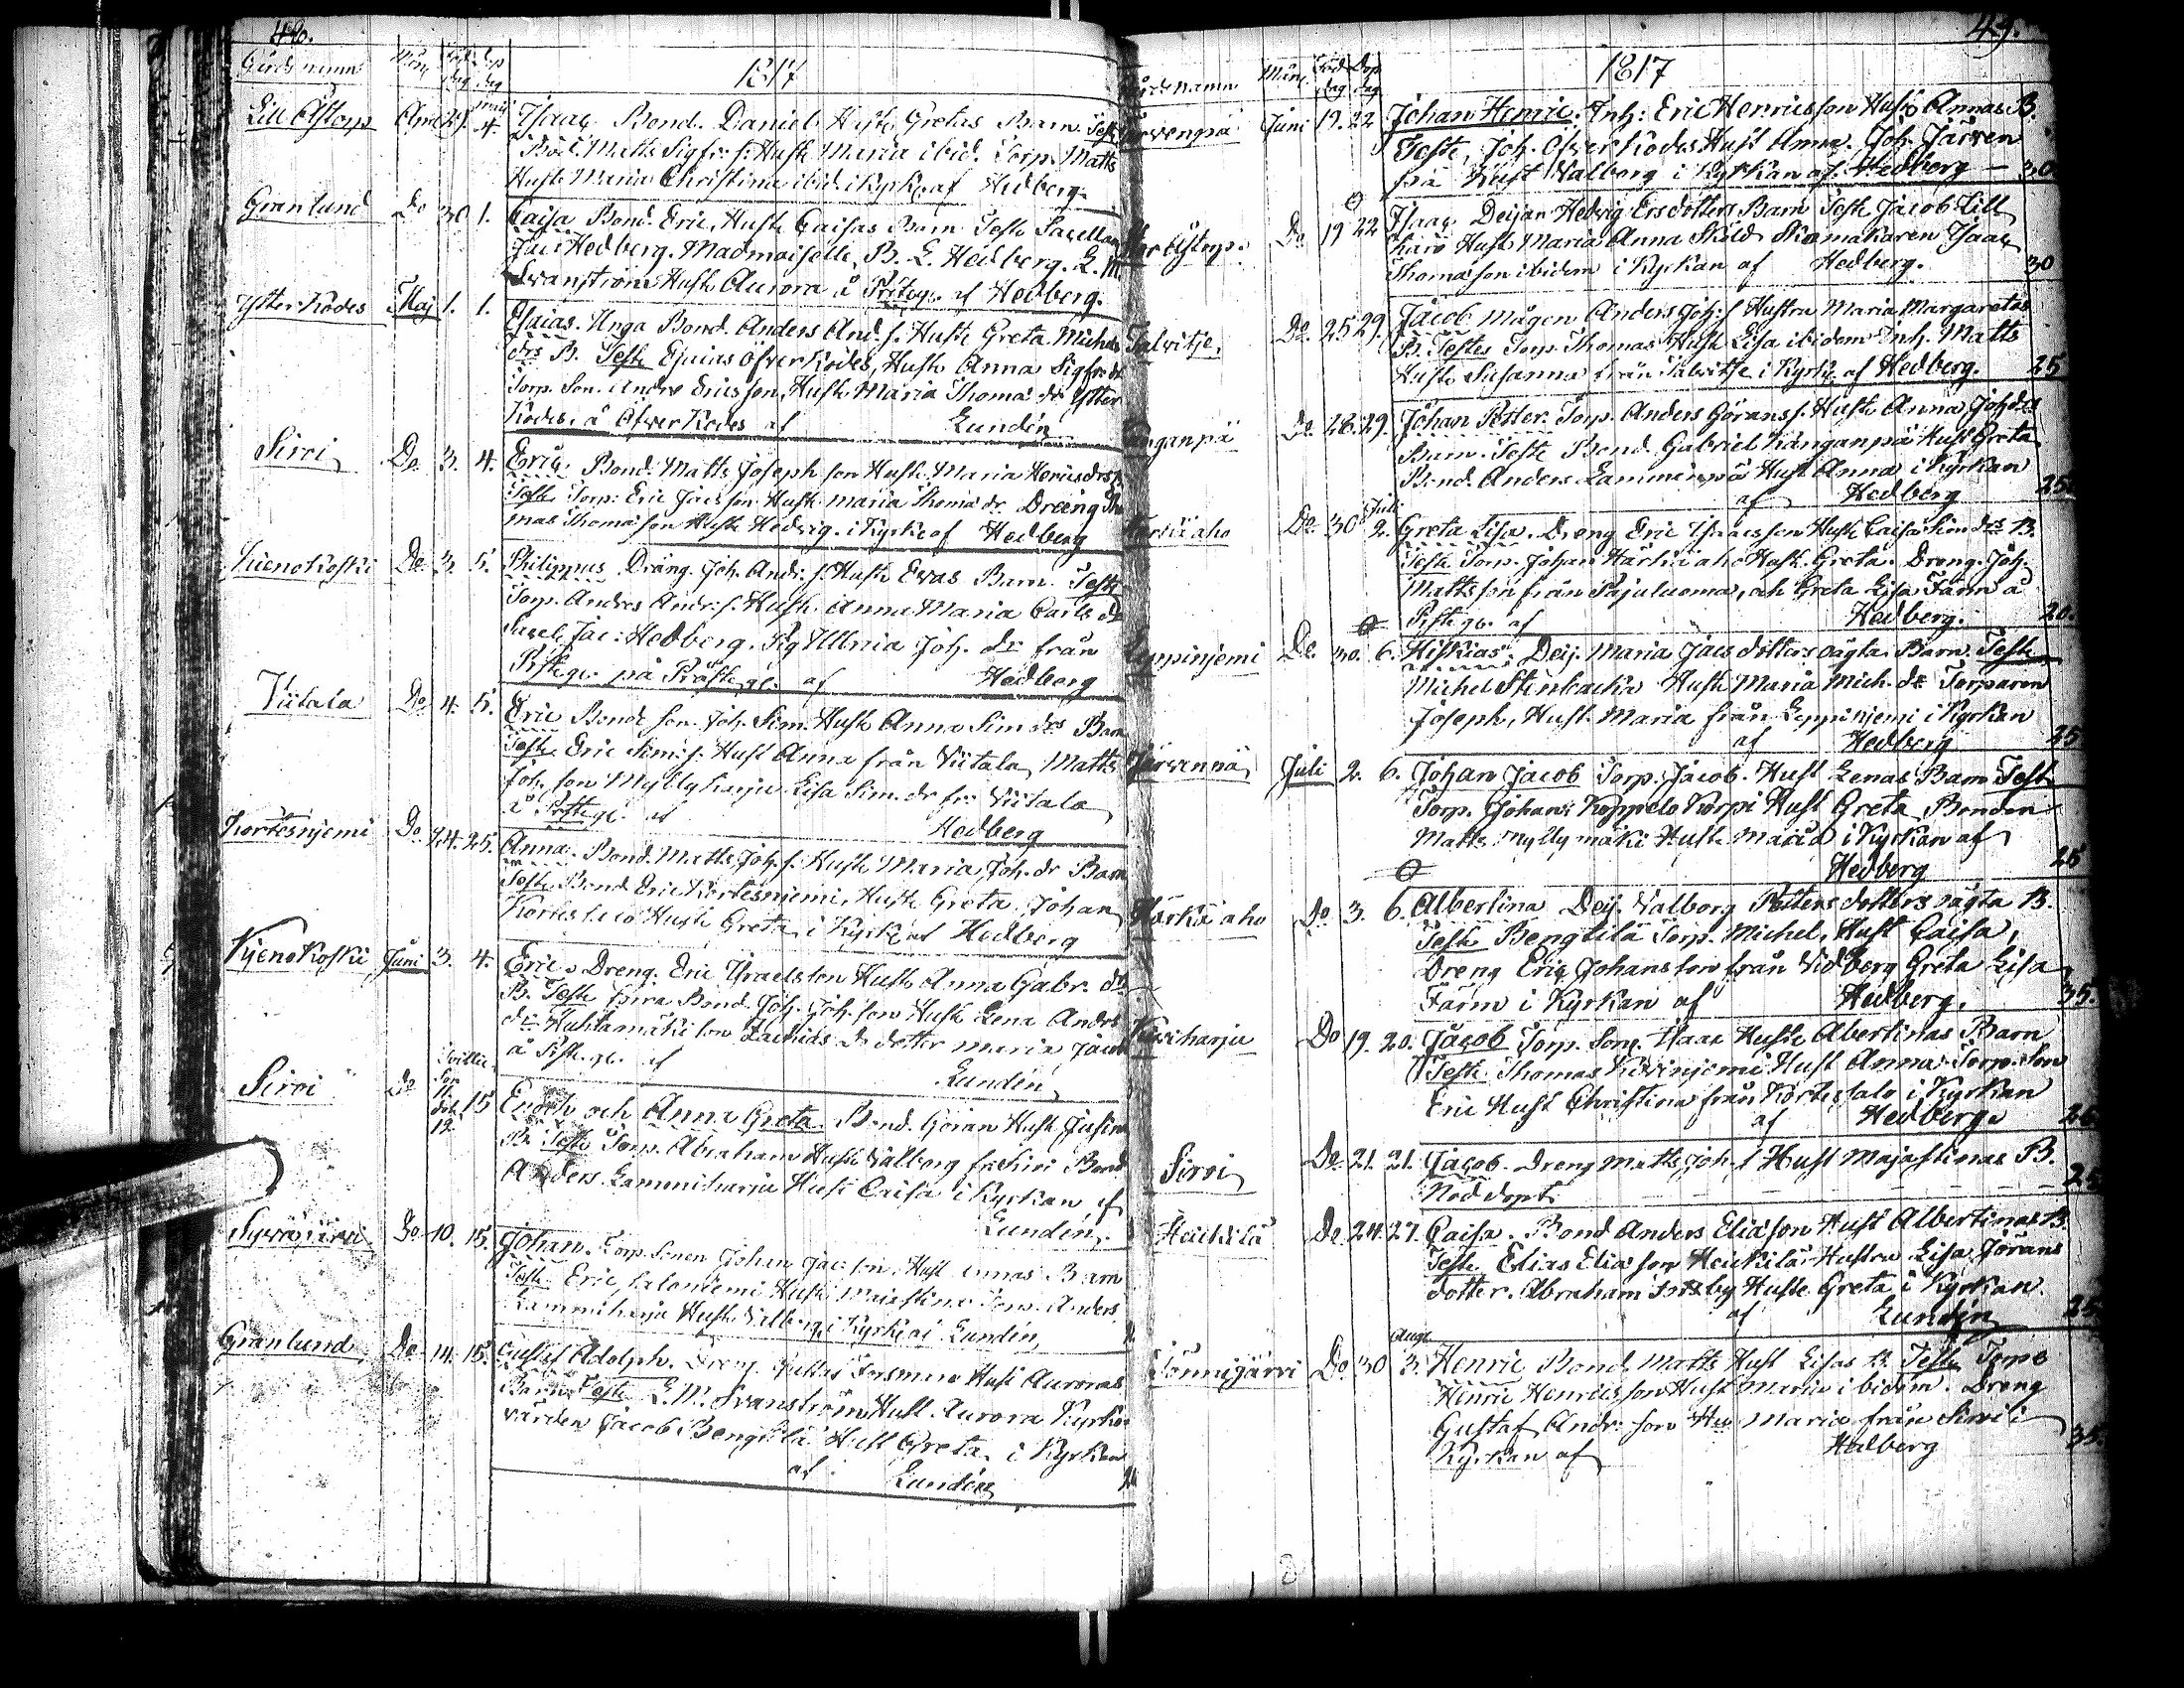 48.
Gårds namn Mån Föd. dag Dop dag 1817
Lill Åstorp Apr. 29. Maji 4. Isaac Bond. Daniel Hust. Gretas Barn. Test.
Bond. Matts Sigfr: s. Hust. Maria ibid. Torp. Matts
Hust. Maria Christina ibid. i Kyrk. af Hedberg.
Granlund Do 30. 1. Caisa Bond. Eric, Hust. Caisas Barn Test. Sacellan
Jac. Hedberg. Madmoiselle, B. L. Hedberg. L. M.
Svanström Hust. Aurora å Prstg. af Hedberg.
Ytter Kodes Maj 1. 1. Esaias. Unga Bond. Anders And. s. Hust. Greta Michels
drs B. Test. Esaias Öfver Kodes, Hust. Anna Sigfr. dr
Torp. Son. Andrs Ericsson, Hust. Maria Thoma dr Ytter
Kodes. å Öfver Kodes af Lundén
Sirvi Do. 3. 4. Eric. Bond. Matts Joseph son Hust. Maria Henricsdrs B.
Test. Torp. Eric Jacsson Hust. Maria Thoma dr. Dreng Tho
mas Thomasson Hust. Hedvig. i Kyrk. af Hedberg
Kienokoski Do. 3. 5. Philippus Dräng. Joh. Andr. s. Hust. Evas Barn. Test.
Torp. Andres Andr: s. Hust. Anna Maria Carls dr
Sacel. Jac: Hedberg. Pig Ullrica Joh. dr från
Prstg. på Prästg. af Hedberg
Viitala Do. 4. 5. Eric Bonde son Joh. Sim. Hust. Anna Sim drs Barn
Test. Eric Sim: s. Hust Anna från Viitala, Matts
Joh. son Myllyharju Lisa Sim. dr fr: Viitala
å Prstg. af Hedberg
Kortesnjemi Do 24. 25. Anna. Bond. Matts Joh. s. Hust. Maria Joh. dr Barn
Test. Bond. Eric Kortesnjemi, Hust. Greta. Johan
Hust. Greta, i Kyrk. af Hedberg
Kyenokoski Juni 3. 4. Eric. Dreng. Eric Israelsson Hust. Anna Gabr. drs
B. Test. Bond. Joh. Joh. son Hust. Lena Andrs
dr. Huhtamäki son Zachrias dotter Maria Jacob
å Prstg. af Lundén
Sirvi Do 11. och 12. 15 Enoch och Anna Greta Bond. Göran Hust
B. Test. Torp. Abraham Hust. Valborg fr. Sirvi Bond.
Anders Lammiharju Hust. Caisa i Kyrkan af
Lundén.
Do. 10. 15. Johan. Torp. Sonen Johan Jac. son. Hust. Annas Barn
Test. Eric Salonjemi Hust. Majastina Torp. Anders
Lammiharju Hust. Valborg, i Kyrk. af Lundén,
Granlund Do. 14. 15. Gustaf Adolph. Dreng Forsman Hust. Auroras
Barn. Test. L. M. Svanström Hust. Aurora Kyrko
värden Jacob Bengtilä Hust. Greta. i Kyrkan
af Lundén
49.
Gårdsnamn Mån Född dag Dop dag 1817
Järvenpä Juni 19. 22 Johan Henric. Inh: Eric Henricsson Hust. Annas B.
Teste, Joh. Öfver Kodes Hust Anna. Joh. Järven
pä Hust Valborg i Kyrkan af. Hedberg — 30
Do. 19 22 Isaac Deijan Hedvig Ersdotters Barn Test. Jacob Lill
Hust. Maria Anna Sköld Skomakaren Isaac
Thomasson ibidem i Kyrkan af Hedberg. 30
Salvitje, Do. 25 29. Jacob Mågen Anders Joh: s Hustru Maria Margaretas
B. Testes Torp. Thomas Hust. Lisa ibidem Inh. Matts
Hust. Susanna från Salvitje i Kyrk. af Hedberg. 25
Kanganpä Do. 28. 29. Johan Petter. Torp. Anders Görans s. Hust. Anna Joh. drs
Barn. Teste Bond. Gabriel Kanganpä Hust Greta
Bond. Anders Lammenpä Hust Anna i Kyrkan
af Hedberg 25
Härkiäaho Do 30 Juli 2. Greta Lisa. Dreng Eric Isaacsson Hust. Caisa Sim drs B.
Test. Torp. Johan Härkiäaho Hust. Greta. Dreng. Joh.
Mattsson från Pajuluoma, och Greta Lisa Färm å
Prstg. af Hedberg. 20.
Leppinjemi Do. 30. 6. Hiskias. Deij. Maria Jacs dotters oägta Barn. Test.
Michel Stenbacka Hust. Maria Mich. dr. Torparen
Joseph, Hust. Maria från Leppinjemi i Kyrkan
af Hedberg 25
Järvenpä Juli 2. 6. Johan Jacob Torp. Jacob. Hust Lenas Barn Test.
Torp. Johan Koppelo Korpi Hust Greta Bonden
Matts Myllymäki Hust. Maria i Kyrkan af
Hedberg 25
Härkäaho Do 3. 6. Albertina Deij. Valborg Petters dotters oägta B.
Test. Bengtilä Torp. Michel, Hust Caisa,
Dreng Eric Johansson från Vidberg Greta Lisa
Färm i Kyrkan af Hedberg. 35.
Kiviharju Do 19. 20. Jacob Torp. Son. Isaac Hust. Albertinas Barn
Test. Thomas Kivinjemi Hust Anna. Torp. Son
Eric Hust Christina från Kortessalo i Kyrkan
af Hedberg.
Sirvi Do 21. 21. Jacob. Dreng Matts Joh. s Hust Majastinas B.
Nöd döpt. 25
Heikkilä Do 24. 27. Caisa. Bond Anders Eliasson Hust Albertinas B.
Test. Elias Eliasson Heikkilä Hustru Lisa Jörans
dotter. Abraham Hust. Greta i Kyrkan
af Lundén 25
Sönnigjärvi Do 30 Aug. 3. Henric Bond. Matts Hust Lisas B. Test. Torp.
Henric Henricsson Hust Maria ibidem. Dreng
Gustaf Andr. son Hu Maria från Sirvi i
Kyrkan af Hedberg 35.